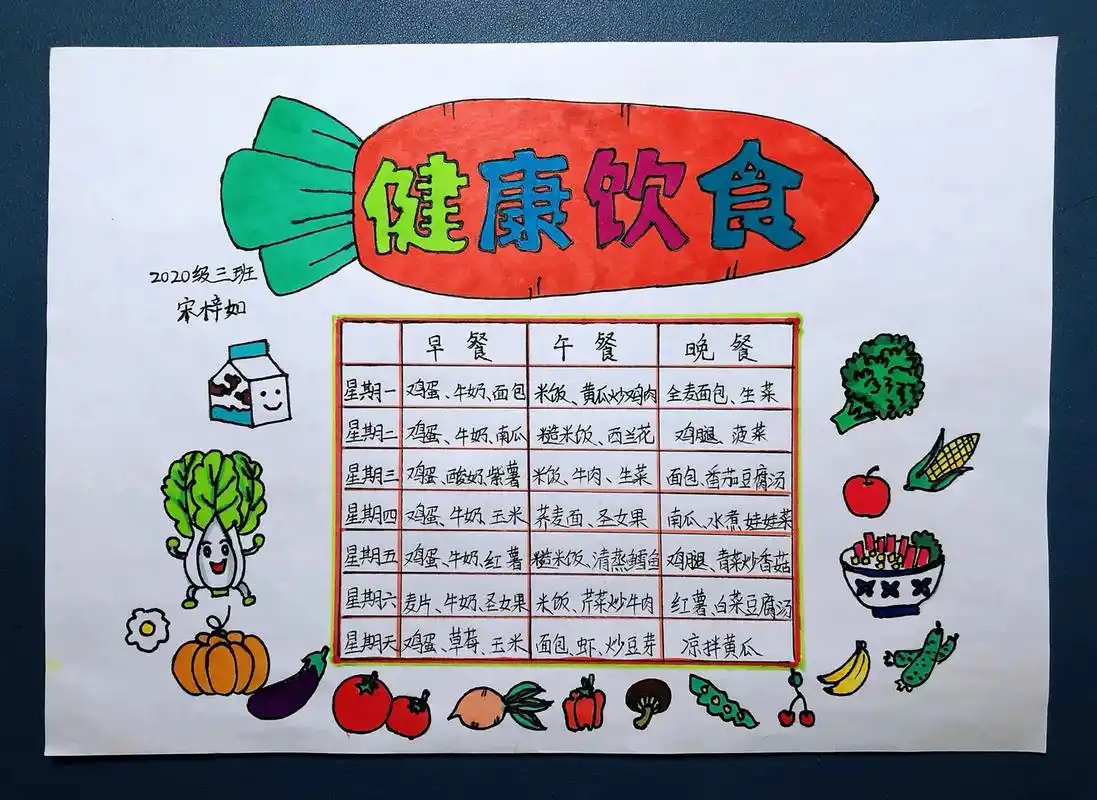 健康饮食
2020级三班
宋梓如
早餐 午餐 晚餐
星期一 鸡蛋、牛奶、面包 米饭、黄瓜炒鸡肉 全麦面包、生菜
星期二 鸡蛋、牛奶、南瓜 糙米饭、西兰花 鸡腿、菠菜
星期三 鸡蛋、酸奶、紫薯 米饭、牛肉、生菜 面包、番茄豆腐汤
星期四 鸡蛋、牛奶、玉米 荞麦面、圣女果 南瓜、水煮娃娃菜
星期五 鸡蛋、牛奶、红薯 糙米饭、清蒸鳕鱼 鸡腿、青菜炒香菇
星期六 麦片、牛奶、圣女果 米饭、芹菜炒牛肉 红薯、白菜豆腐汤
星期天 鸡蛋、草莓、玉米 面包、虾、炒豆芽 凉拌黄瓜